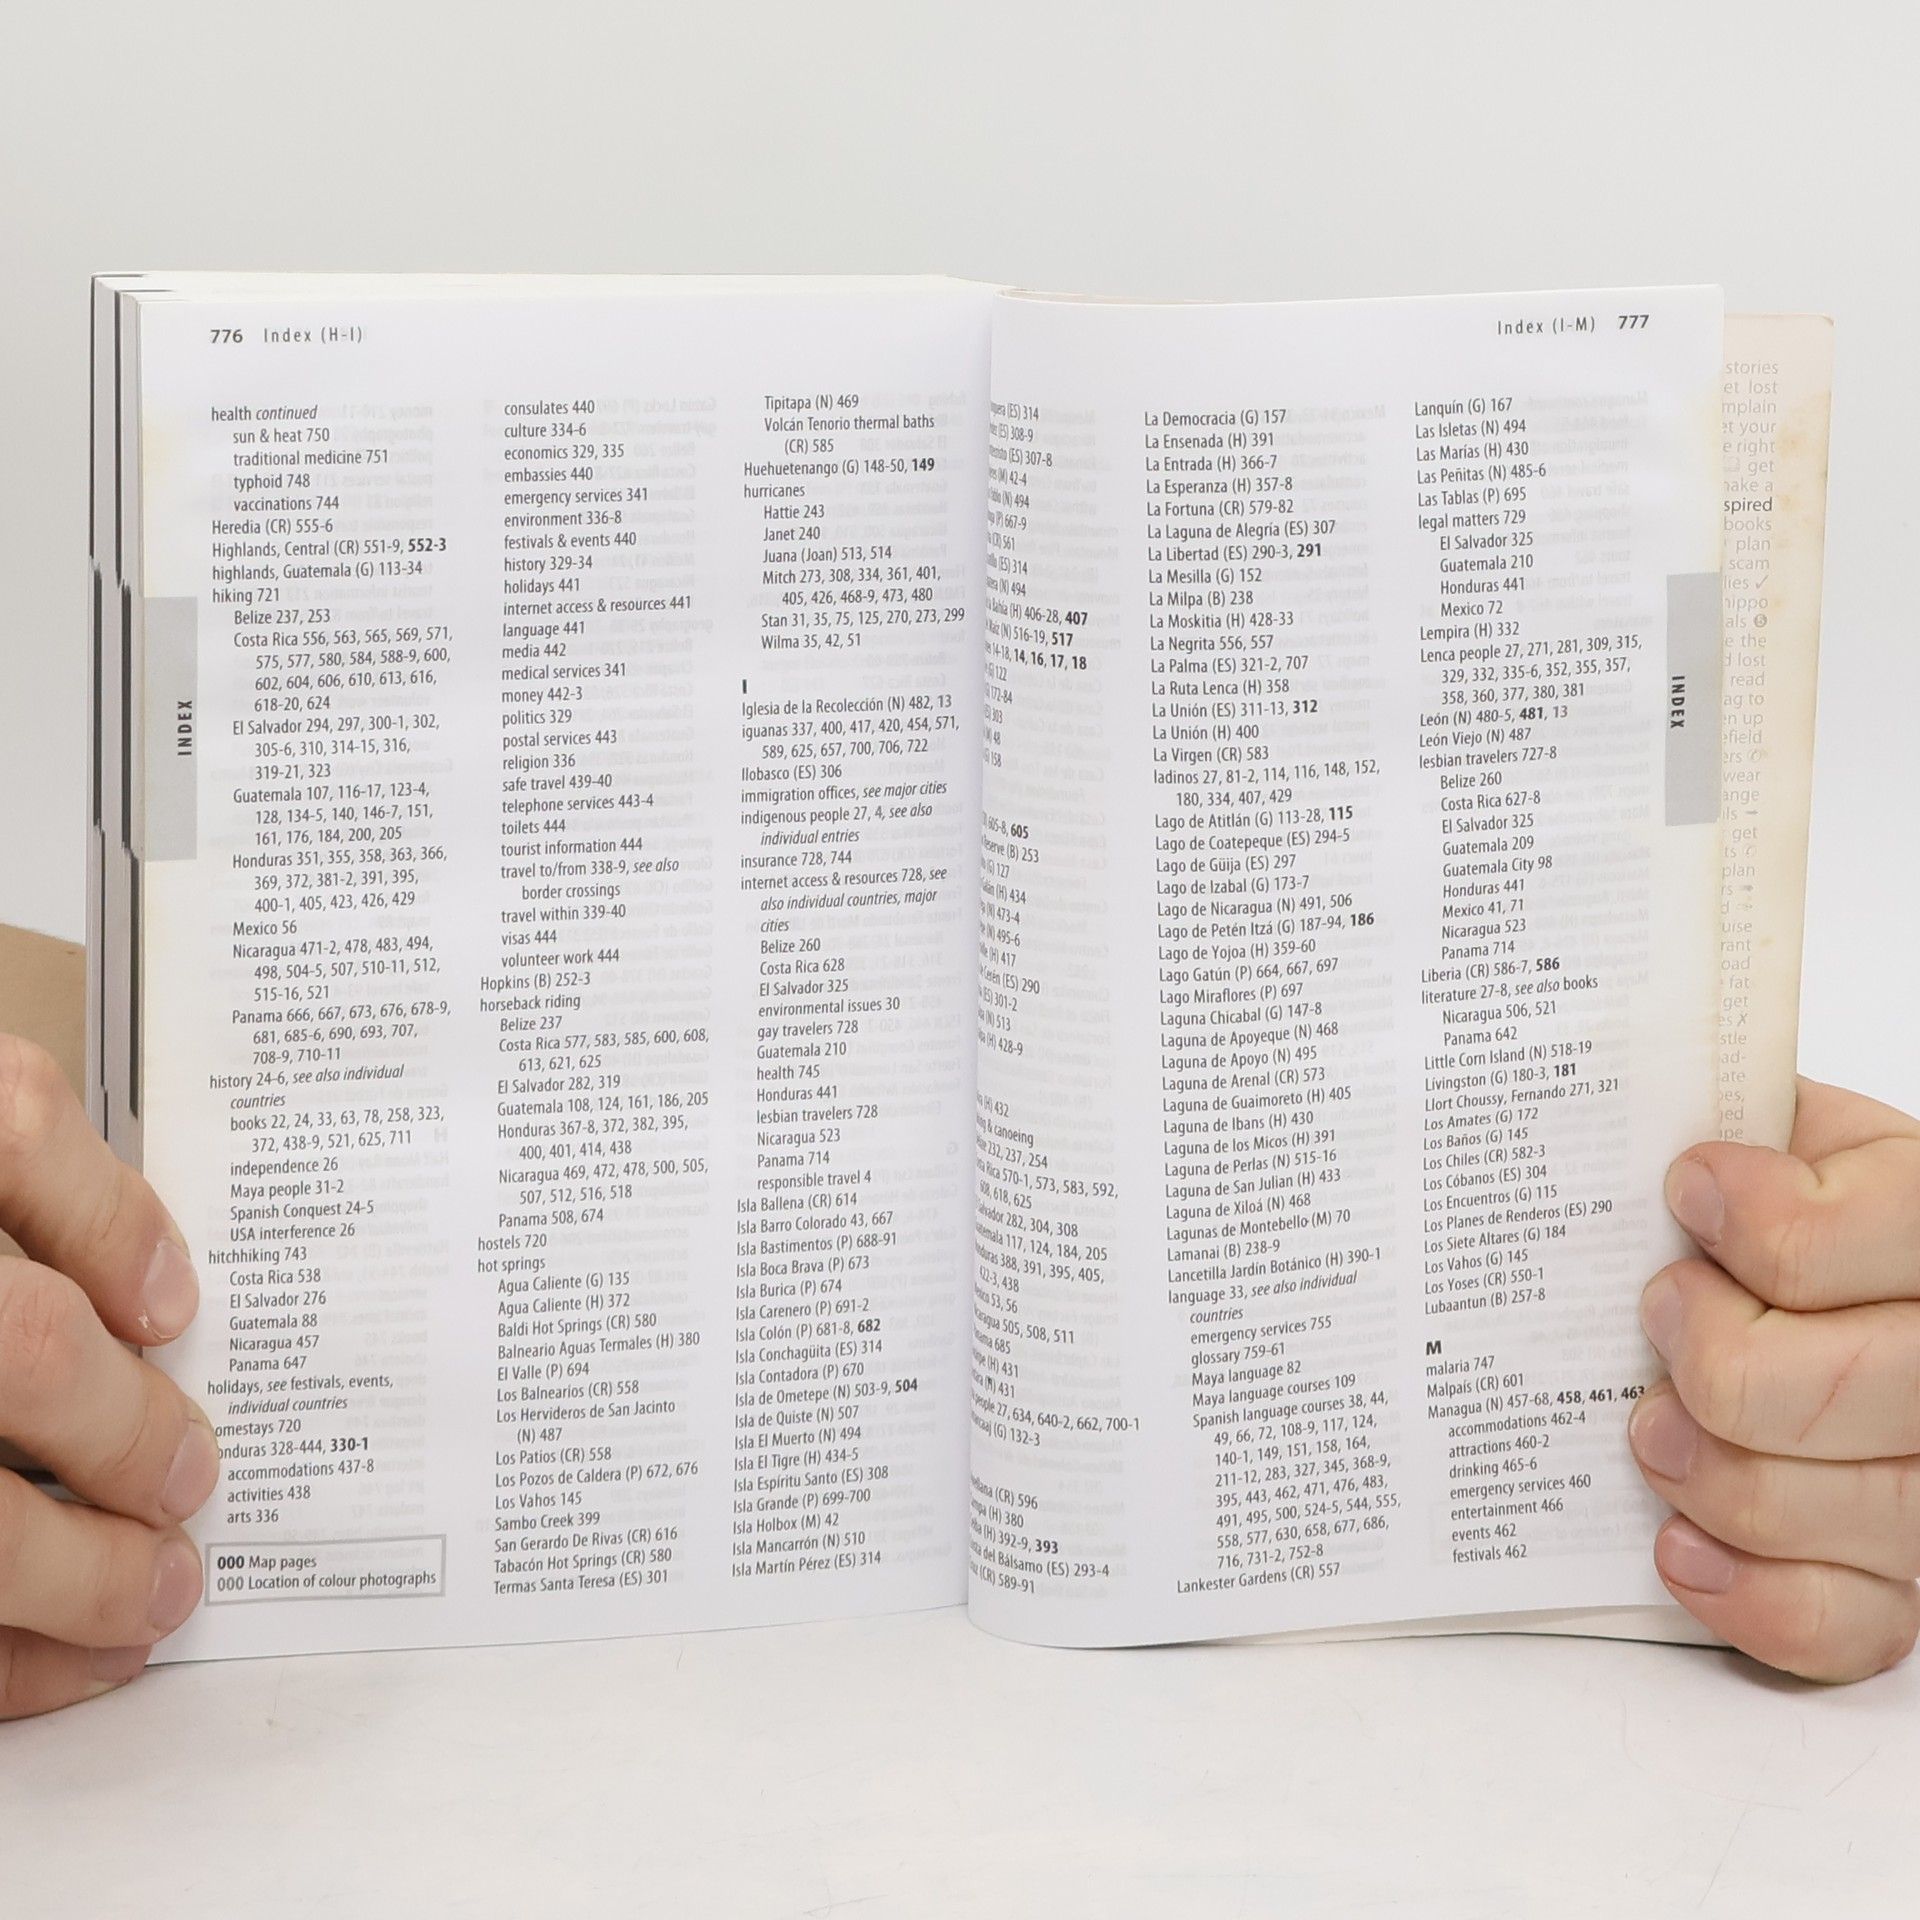 776 Index (H-I)
health continued
sun & heat 750
traditional medicine 751
typhoid 748
vaccinations 744
Heredia (CR) 555-6
Highlands, Central (CR) 551-9, 552-3
highlands, Guatemala (G) 113-34
hiking 721
Belize 237, 253
Costa Rica 556, 563, 565, 569, 571,
575, 577, 580, 584, 588-9, 600,
602, 604, 606, 610, 613, 616,
618-20, 624
El Salvador 294, 297, 300-1, 302,
305-6, 310, 314-15, 316,
319-21, 323
Guatemala 107, 116-17, 123-4,
128, 134-5, 140, 146-7, 151,
161, 176, 184, 200, 205
Honduras 351, 355, 358, 363, 366,
369, 372, 381-2, 391, 395,
400-1, 405, 423, 426, 429
Mexico 56
Nicaragua 471-2, 478, 483, 494,
498, 504-5, 507, 510-11, 512,
515-16, 521
Panama 666, 667, 673, 676, 678-9,
681, 685-6, 690, 693, 707,
708-9, 710-11
history 24-6, see also individual
countries
books 22, 24, 33, 63, 78, 258, 323,
372, 438-9, 521, 625, 711
independence 26
Maya people 31-2
Spanish Conquest 24-5
USA interference 26
hitchhiking 743
Costa Rica 538
El Salvador 276
Guatemala 88
Nicaragua 457
Panama 647
holidays, see festivals, events,
individual countries
omestays 720
onduras 328-444, 330-1
accommodations 437-8
activities 438
arts 336
000 Map pages
000 Location of colour photographs
INDEX
consulates 440
culture 334-6
economics 329, 335
embassies 440
emergency services 341
environment 336-8
festivals & events 440
history 329-34
holidays 441
internet access & resources 441
language 441
media 442
medical services 341
money 442-3
politics 329
postal services 443
religion 336
safe travel 439-40
telephone services 443-4
toilets 444
tourist information 444
travel to/from 338-9, see also
border crossings
travel within 339-40
visas 444
volunteer work 444
Hopkins (B) 252-3
horseback riding
Belize 237
Costa Rica 577, 583, 585, 600, 608,
613, 621, 625
El Salvador 282, 319
Guatemala 108, 124, 161, 186, 205
Honduras 367-8, 372, 382, 395,
400, 401, 414, 438
Nicaragua 469, 472, 478, 500, 505,
507, 512, 516, 518
Panama 508, 674
hostels 720
hot springs
Agua Caliente (G) 135
Agua Caliente (H) 372
Baldi Hot Springs (CR) 580
Balneario Aguas Termales (H) 380
El Valle (P) 694
Los Balnearios (CR) 558
Los Hervideros de San Jacinto
(N) 487
Los Patios (CR) 558
Los Pozos de Caldera (P) 672, 676
Los Vahos 145
Sambo Creek 399
San Gerardo De Rivas (CR) 616
Tabacón Hot Springs (CR) 580
Termas Santa Teresa (ES) 301
Tipitapa (N) 469
Volcán Tenorio thermal baths
(CR) 585
Huehuetenango (G) 148-50, 149
hurricanes
Hattie 243
Janet 240
Juana (Joan) 513, 514
Mitch 273, 308, 334, 361, 401,
405, 426, 468-9, 473, 480
Stan 31, 35, 75, 125, 270, 273, 299
Wilma 35, 42, 51
I
Iglesia de la Recolección (N) 482, 13
iguanas 337, 400, 417, 420, 454, 571,
589, 625, 657, 700, 706, 722
Ilobasco (ES) 306
immigration offices, see major cities
indigenous people 27, 4, see also
individual entries
insurance 728, 744
internet access & resources 728, see
also individual countries, major
cities
Belize 260
Costa Rica 628
El Salvador 325
environmental issues 30
gay travelers 728
Guatemala 210
health 745
Honduras 441
lesbian travelers 728
Nicaragua 523
Panama 714
responsible travel 4
Isla Ballena (CR) 614
Isla Barro Colorado 43, 667
Isla Bastimentos (P) 688-91
Isla Boca Brava (P) 673
Isla Burica (P) 674
Isla Carenero (P) 691-2
Isla Colón (P) 681-8, 682
Isla Conchagüita (ES) 314
Isla Contadora (P) 670
Isla de Ometepe (N) 503-9, 504
Isla de Quiste (N) 507
Isla El Muerto (N) 494
Isla El Tigre (H) 434-5
Isla Espíritu Santo (ES) 308
Isla Grande (P) 699-700
Isla Holbox (M) 42
Isla Mancarrón (N) 510
Isla Martín Pérez (ES) 314
Index (I-M) 777
(ES) 314
(ES) 308-9
(ES) 307-8
(M) 42-4
(N) 494
(P) 667-9
(CR) 561
(ES) 314
(N) 494
Bahía (H) 406-28, 407
(N) 516-19, 517
14-18, 14, 16, 17, 18
(G) 122
(G) 172-84
(ES) 303
48
(G) 158
605-8, 605
Reserve (B) 253
(G) 127
(H) 434
(N) 473-4
(N) 495-6
(H) 417
Cerén (ES) 290
(ES) 301-2
(N) 513
(H) 428-9
(H) 432
& canoeing
232, 237, 254
Rica 570-1, 573, 583, 592,
608, 618, 625
Salvador 282, 304, 308
117, 124, 184, 205
388, 391, 395, 405,
422-3, 438
53, 56
505, 508, 511
685
(H) 431
(H) 431
people 27, 634, 640-2, 662, 700-1
(G) 132-3
(CR) 596
(H) 380
(H) 392-9, 393
del Bálsamo (ES) 293-4
(CR) 589-91
La Democracia (G) 157
La Ensenada (H) 391
La Entrada (H) 366-7
La Esperanza (H) 357-8
La Fortuna (CR) 579-82
La Laguna de Alegría (ES) 307
La Libertad (ES) 290-3, 291
La Mesilla (G) 152
La Milpa (B) 238
La Moskitia (H) 428-33
La Negrita 556, 557
La Palma (ES) 321-2, 707
La Ruta Lenca (H) 358
La Unión (ES) 311-13, 312
La Unión (H) 400
La Virgen (CR) 583
ladinos 27, 81-2, 114, 116, 148, 152,
180, 334, 407, 429
Lago de Atitlán (G) 113-28, 115
Lago de Coatepeque (ES) 294-5
Lago de Güija (ES) 297
Lago de Izabal (G) 173-7
Lago de Nicaragua (N) 491, 506
Lago de Petén Itzá (G) 187-94, 186
Lago de Yojoa (H) 359-60
Lago Gatún (P) 664, 667, 697
Lago Miraflores (P) 697
Laguna Chicabal (G) 147-8
Laguna de Apoyeque (N) 468
Laguna de Apoyo (N) 495
Laguna de Arenal (CR) 573
Laguna de Guaimoreto (H) 405
Laguna de Ibans (H) 430
Laguna de los Micos (H) 391
Laguna de Perlas (N) 515-16
Laguna de San Julian (H) 433
Laguna de Xiloá (N) 468
Lagunas de Montebello (M) 70
Lamanai (B) 238-9
Lancetilla Jardín Botánico (H) 390-1
language 33, see also individual
countries
emergency services 755
glossary 759-61
Maya language 82
Maya language courses 109
Spanish language courses 38, 44,
49, 66, 72, 108-9, 117, 124,
140-1, 149, 151, 158, 164,
211-12, 283, 327, 345, 368-9,
395, 443, 462, 471, 476, 483,
491, 495, 500, 524-5, 544, 555,
558, 577, 630, 658, 677, 686,
716, 731-2, 752-8
Lankester Gardens (CR) 557
Lanquín (G) 167
Las Isletas (N) 494
Las Marías (H) 430
Las Peñitas (N) 485-6
Las Tablas (P) 695
legal matters 729
El Salvador 325
Guatemala 210
Honduras 441
Mexico 72
Lempira (H) 332
Lenca people 27, 271, 281, 309, 315,
329, 332, 335-6, 352, 355, 357,
358, 360, 377, 380, 381
León (N) 480-5, 481, 13
León Viejo (N) 487
lesbian travelers 727-8
Belize 260
Costa Rica 627-8
El Salvador 325
Guatemala 209
Guatemala City 98
Honduras 441
Mexico 41, 71
Nicaragua 523
Panama 714
Liberia (CR) 586-7, 586
literature 27-8, see also books
Nicaragua 506, 521
Panama 642
Little Corn Island (N) 518-19
Livingston (G) 180-3, 181
Llort Choussy, Fernando 271, 321
Los Amates (G) 172
Los Baños (G) 145
Los Chiles (CR) 582-3
Los Cóbanos (ES) 304
Los Encuentros (G) 115
Los Planes de Renderos (ES) 290
Los Siete Altares (G) 184
Los Vahos (G) 145
Los Yoses (CR) 550-1
Lubaantun (B) 257-8
M
malaria 747
Malpaís (CR) 601
Managua (N) 457-68, 458, 461, 463
accommodations 462-4
attractions 460-2
drinking 465-6
emergency services 460
entertainment 466
events 462
festivals 462
INDEX
stories
et lost
mplain
et your
e right
get
make a
spired
books
plan
scam
lies
hippo
als
e the
d lost
read
ag to
en up
efield
ers
wear
ange
ils
get
ts
plan
rs
d
uise
rant
oad
fat
get
es
stle
oad-
ate
oes,
ned
ape